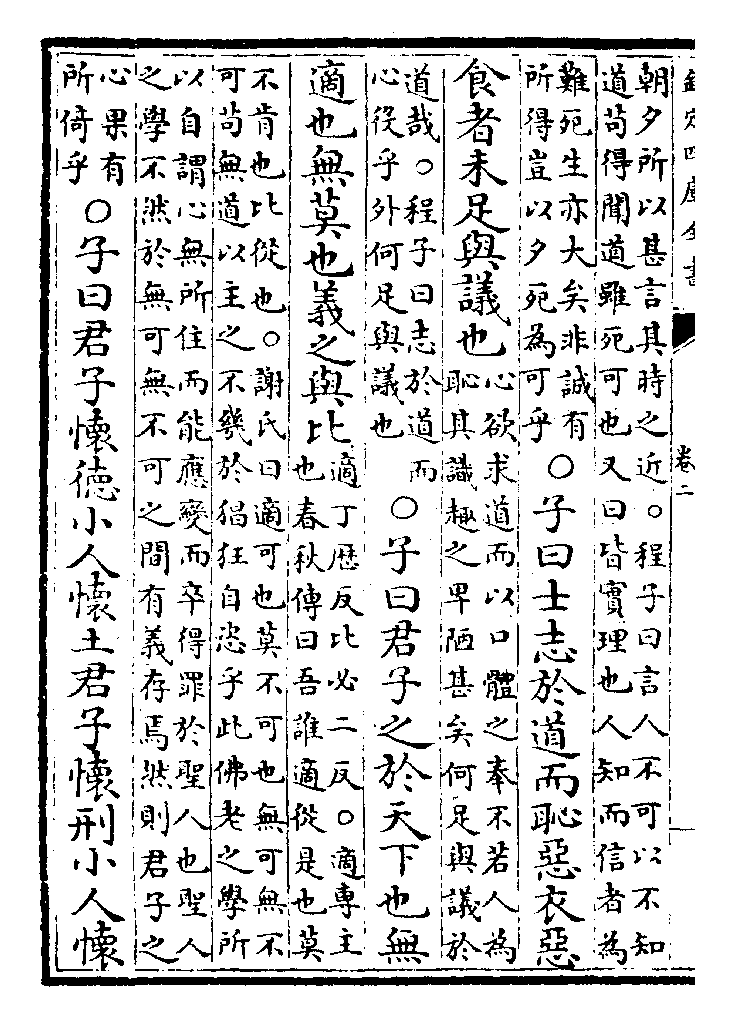 欽定四庫全書
卷二
朝夕所以甚言其時之近○程子曰言人不可以不知
道苟得聞道雖死可也又曰皆實理也人知而信者為
難死生亦大矣非誠有
所得豈以夕死為可乎
○子曰士志於道而恥惡衣惡
食者未足與議也
心欲求道而以口體之奉不若人為
恥其識趣之卑陋甚矣何足與議於
道哉○程子曰志於道而
心役乎外何足與議也
○子曰君子之於天下也無
適也無莫也義之與比
適丁歷反比必二反○適專主
也春秋傳曰吾誰適從是也莫
不肯也比從也○謝氏曰適可也莫不可也無可無不
可苟無道以主之不幾於猖狂自恣乎此佛老之學所
以自謂心無所住而能應變而卒得罪於聖人也聖人
之學不然於無可無不可之間有義存焉然則君子之
心果有
所倚乎
○子曰君子懷德小人懷土君子懷刑小人懷